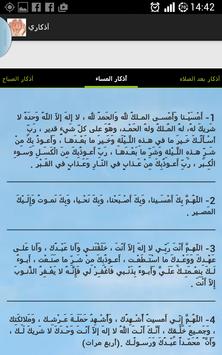 14:42
أذكاري
أذكار بعد الصلاة
أذكار المساء
أذكار الصباح
1- أَمْسَيْنَا وَأَمْسَى المُلْكُ لله وَالحَمْدُ لله ، لا إله إلاّ اللّهُ وَحدَهُ لا
شَريكَ لهُ، لهُ المُلكُ ولهُ الحَمْد، وهُوَ على كلّ شَيءٍ قدير ، رَبِّ
أسْأَلُكَ خَيرَ ما في هذهِ اللَّيْلَةِ وَخَيرَ ما بَعْدَها ، وَأَعوذُ بِكَ مِنْ
شَرِّ ما في هذهِ اللَّيْلةِ وَشَرِّ ما بَعْدَها ، رَبِّ أَعوذُ بِكَ مِنَ الْكَسَلِ وَسوءِ
الْكِبَر ، رَبِّ أَعوذُ بِكَ مِنْ عَذابٍ في النّارِ وَعَذابٍ في القَبْر .
2- اللّهُمَّ بِكَ أَمْسَينا، وَبِكَ أَصْبَحْنا، وَبِكَ نَحْيا، وَبِكَ نَموتُ وَإِلَيْكَ
المَصير .
3- اللّهمَّ أَنْتَ رَبِّي لا إلهَ إلاّ أَنْتَ ، خَلَقْتَني وَأَنا عَبْدُك ، وَأَنا عَلى
عَهْدِكَ وَوَعْدِكَ ما اسْتَطَعْت ، أَعوذُ بِكَ مِنْ شَرِّ ما صَنَعْت ، أَبوءُ لَكَ
بِنِعْمَتِكَ عَلَيَّ وَأَبوءُ بِذَنْبي فَاغْفِرْ لي فَإِنَّهُ لا يَغْفِرُ الذُّنوبَ إِلاّ أَنْتَ .
4- اللّهُمَّ إِنِّي أَمسيتُ أُشْهِدُك ، وَأُشْهِدُ حَمَلَةَ عَرْشِك ، وَمَلائِكَتِك
، وَجَميعَ خَلْقِك ، أَنَّكَ أَنْتَ اللهُ لا إلهَ إلاّ أَنْتَ وَحْدَكَ لا شَريكَ
لَك ، وَأَنَّ مُحَمّداً عَبْدُكَ وَرَسولُك .(أربع مرات)